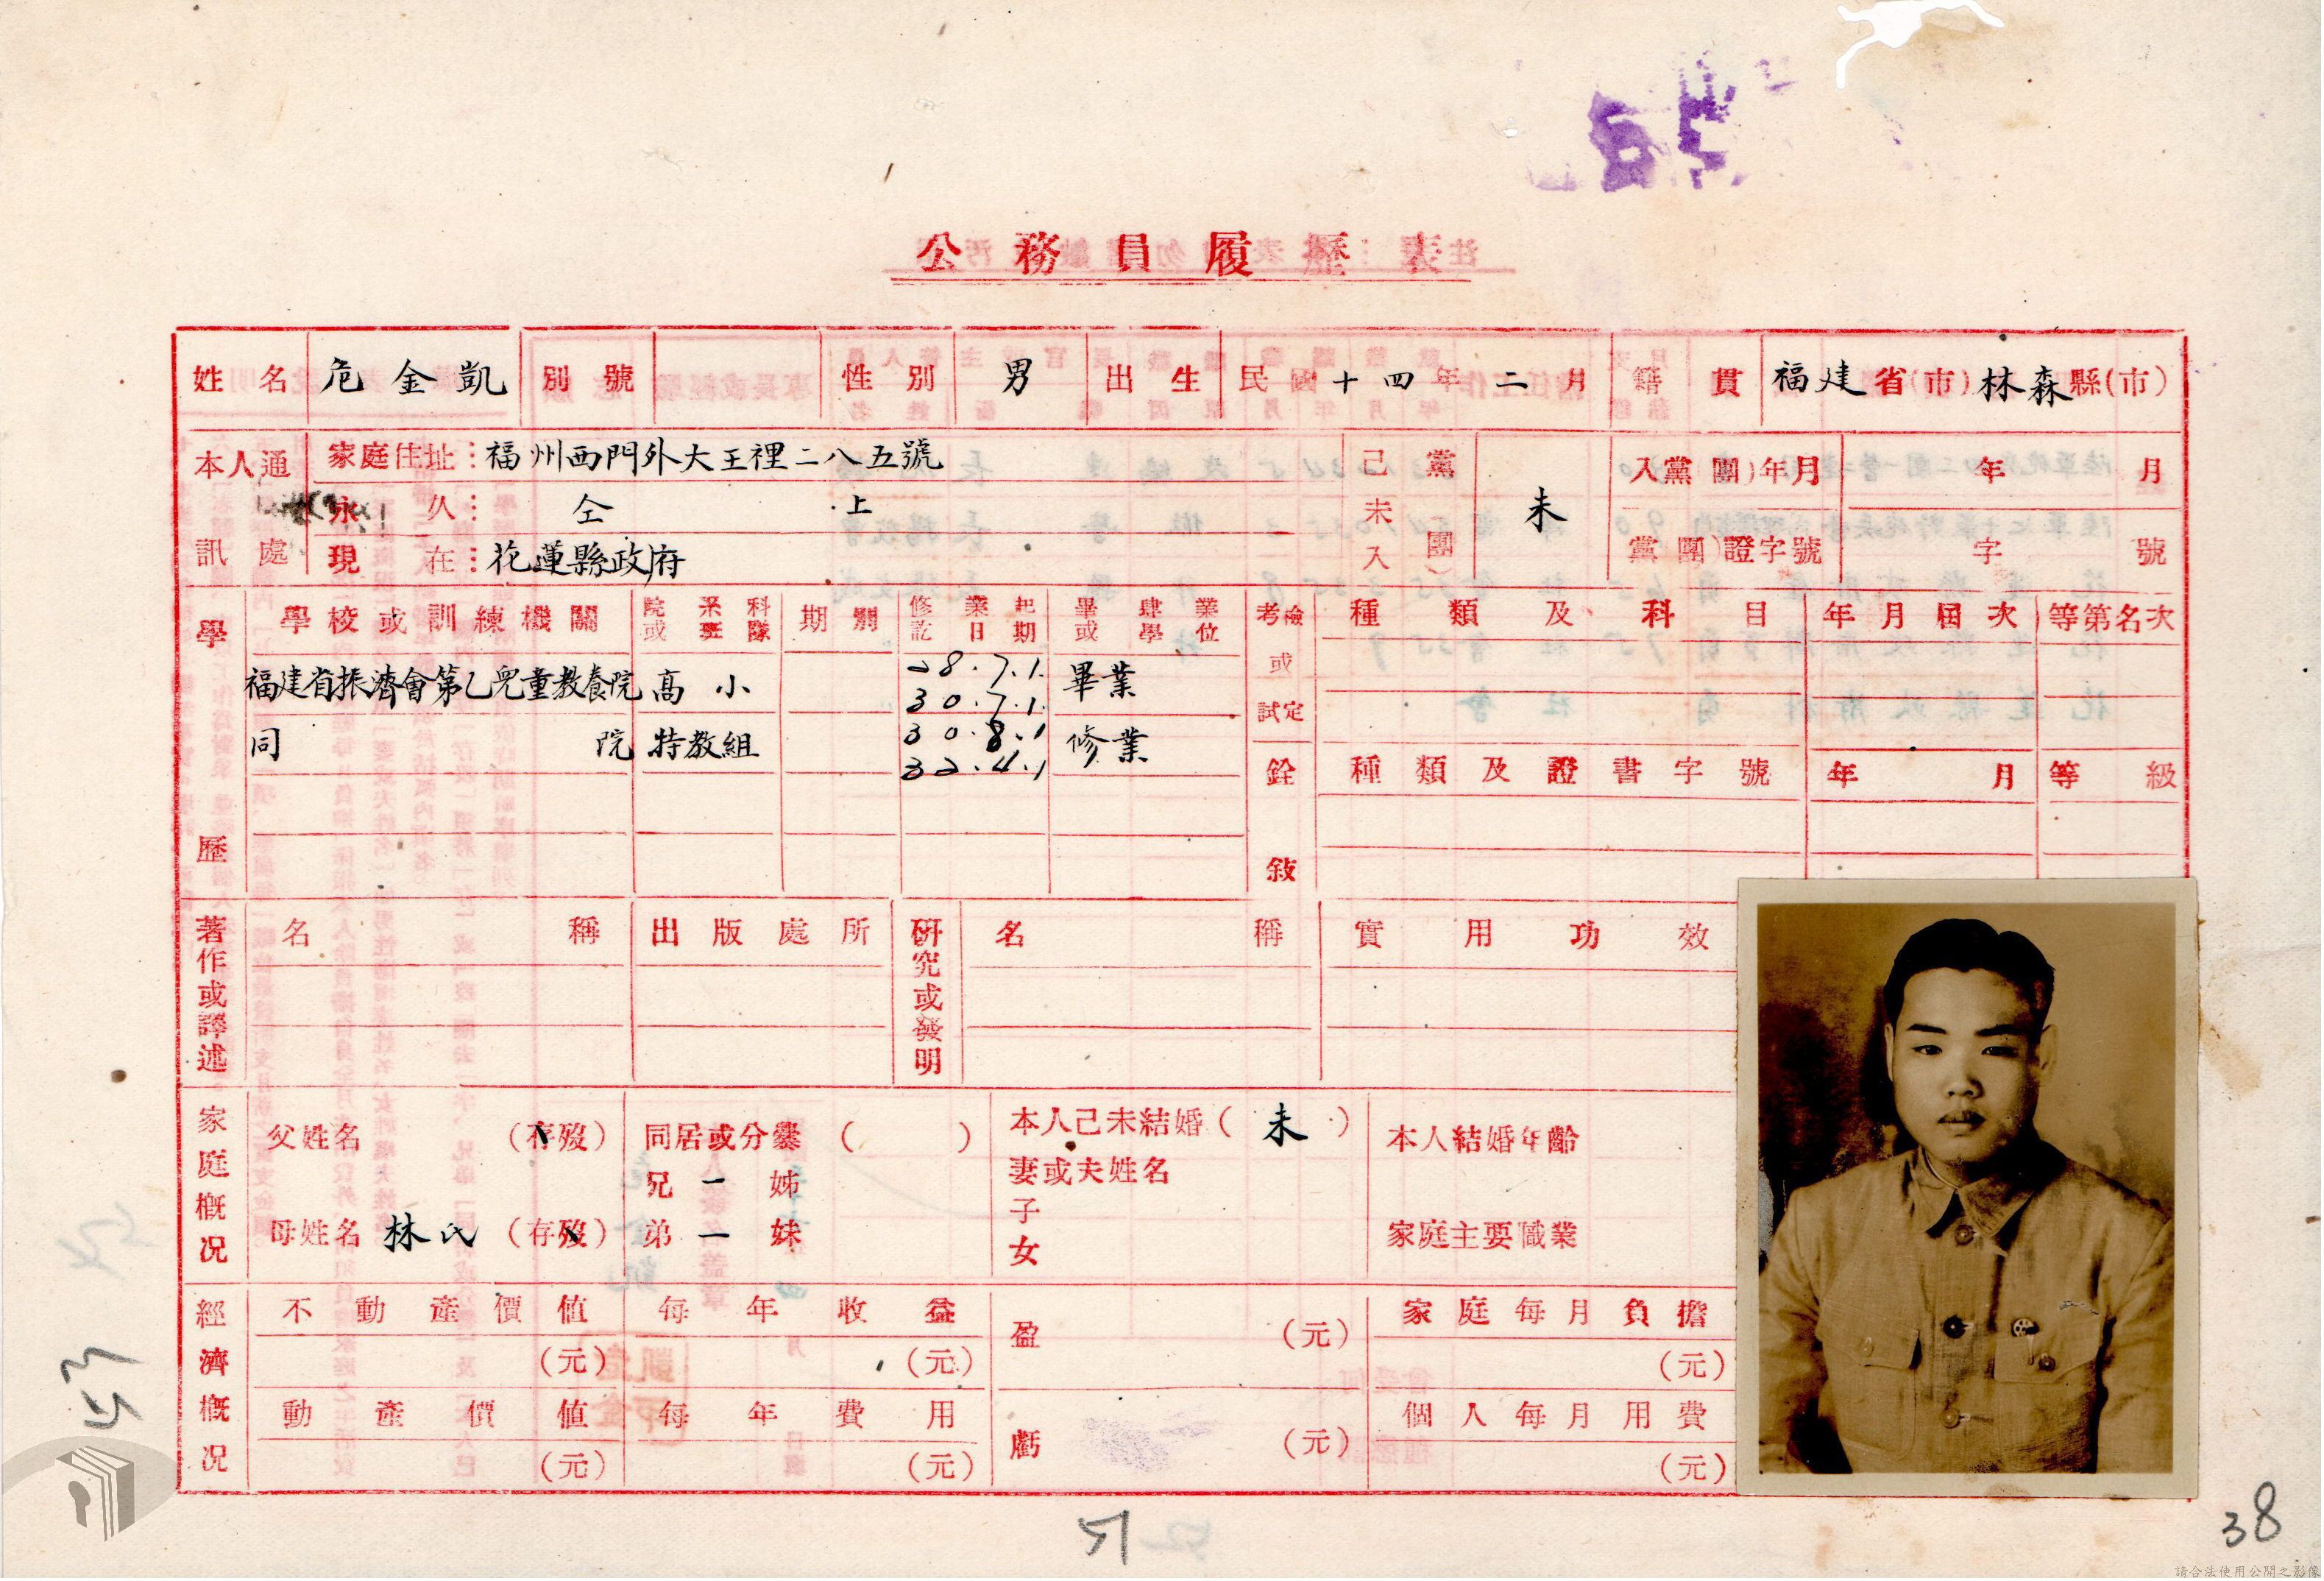 公務員履歷表
姓名 危金凱 別號 性別 男 出生 民國十四年二月 籍貫 福建省(市)林森縣(市)
本人通訊處
家庭住址：福州西門外大王裡二八五號
永久：仝上
現在：花蓮縣政府
已未入黨(團) 未
入黨(團)年月 年 月
黨(團)證字號 字 號
學歷
學校或訓練機關 院系科或班隊 期別 修業起訖日期 畢肄業或學位
福建省振濟會第乙兒童教養院 高小 28.7.1. 30.7.1. 畢業
同院 特教組 30.8.1 32.4.1 修業
考檢或試定 種類及科目 年月屆次 等第名次
銓敍 種類及證書字號 年月 等級
著作或譯述 名稱 出版處所
研究或發明 名稱 實用功效
家庭概況
父姓名 (存歿)
母姓名 林氏 (存歿)
同居或分爨( )
兄 一 姊
弟 一 妹
本人已未結婚(未)
妻或夫姓名
子
女
本人結婚年齡
家庭主要職業
經濟概況
不動產價值 每年收益
(元) (元)
動產價值 每年費用
(元) (元)
盈 (元)
虧 (元)
家庭每月負擔
(元)
個人每月用費
(元)
38
請合法使用公開之影像